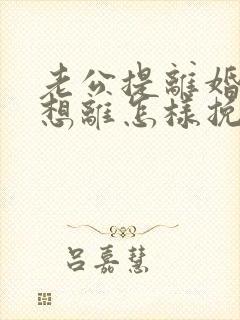 老公提離婚
想離怎樣挽
呂嘉慧